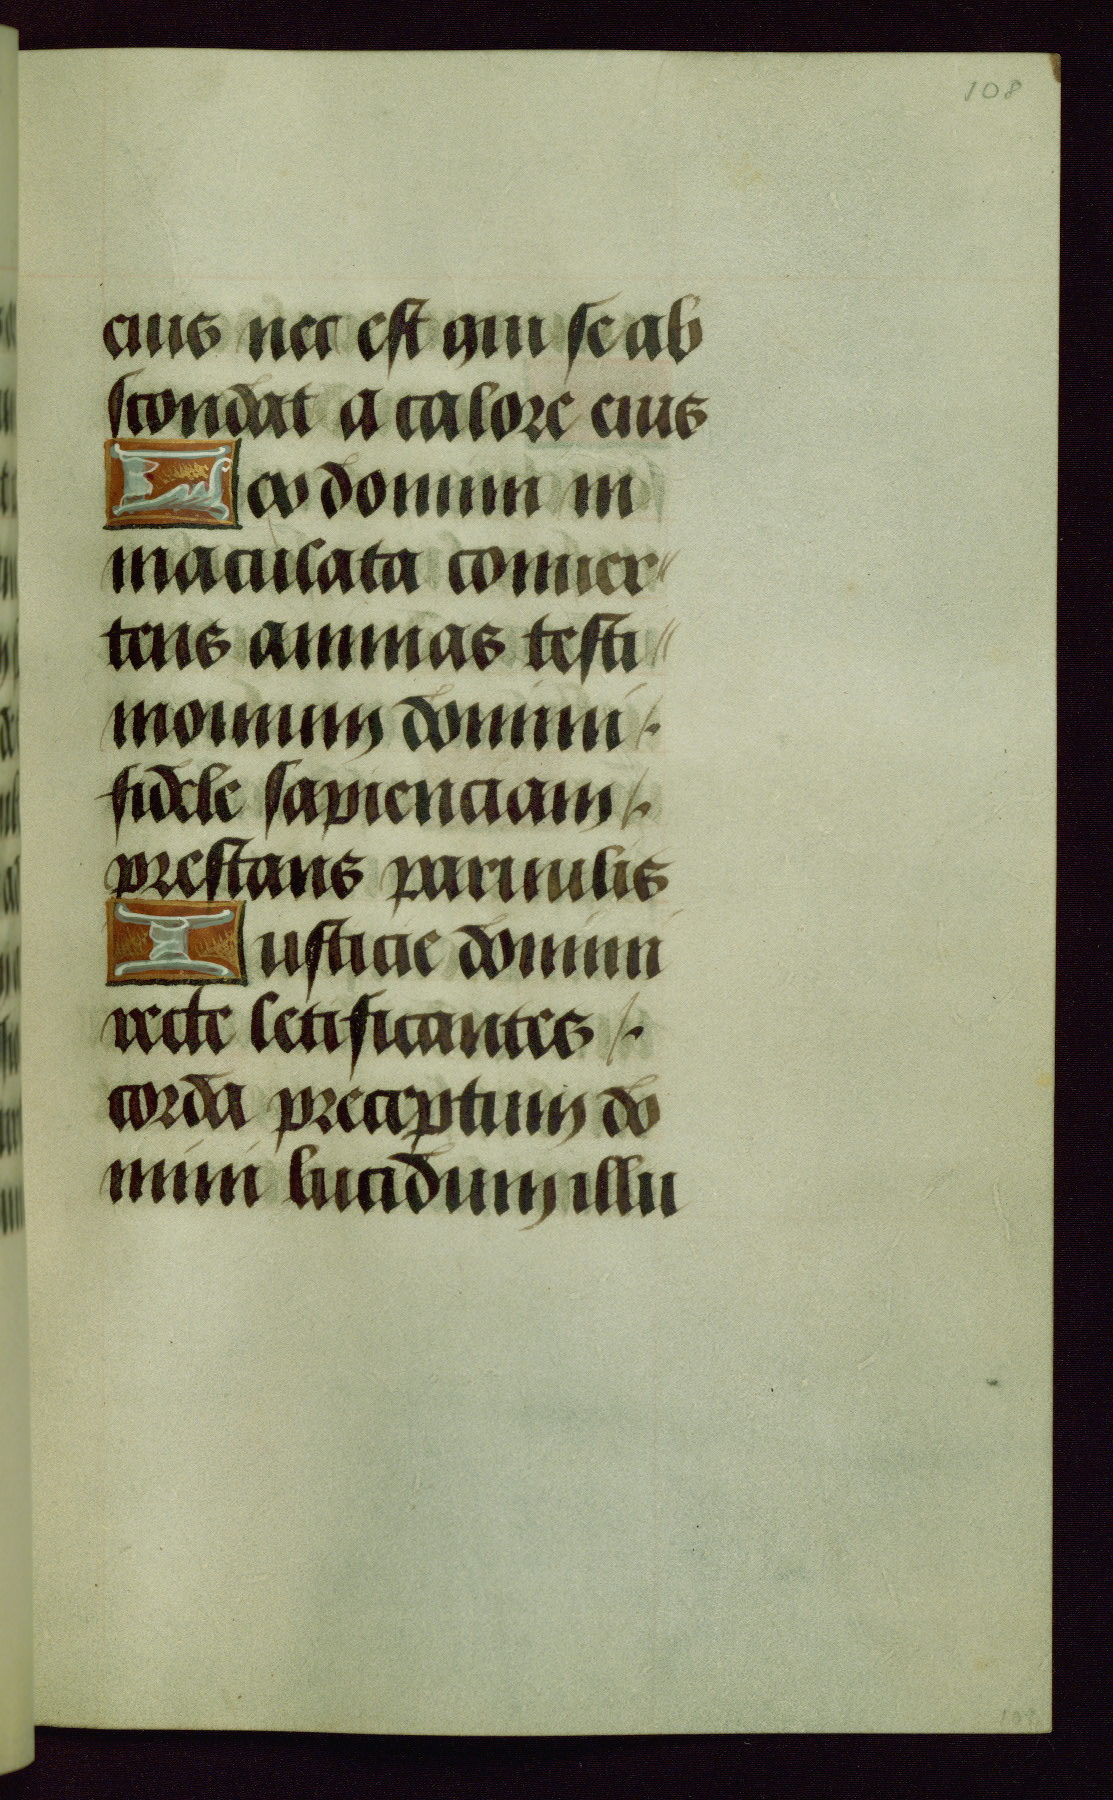 108
eius nec est qui se ab
scondat a calore eius
Lex domini in
maculata conuer〃
tens animas testi〃
monium domini /.
fidele sapienciam /.
prestans paruulis
Iusticie domini
recte letificantes /.
corda preceptum do
mini lucidum illu